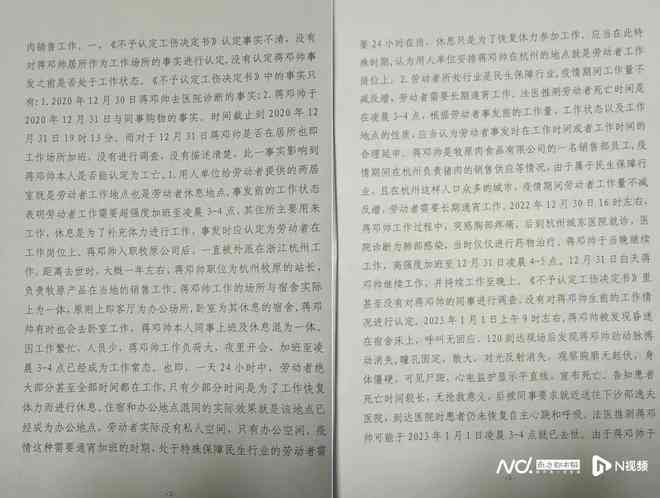 肉销售工作。一、《不予认定工伤决定书》认定事实不清，没有
对蒋邓帅居所作为工作场所的事实进行认定，没有认定蒋邓帅事
发之前是否处于工作状态。《不予认定工伤决定书》中的事实只
有：1.2020年12月30日蒋邓帅去医院诊断的事实；2.蒋邓帅于
2020年12月31日与同事购物的事实。时间截止到2020年12
月31日19时13分。而对于12月31日蒋邓帅是否在居所也即
工作场所加班，没有进行调查，没有描述清楚。此一事实影响到
蒋邓帅本人是否能认定为工亡。1.用人单位给劳动者提供的两居
室既是劳动者工作地点也是劳动者休息地点，事发前的工作状态
表明劳动者工作需要超强度加班至凌晨3-4点，其住所主要用来
工作，休息是为了补充体力进行工作，事发时应认定为劳动者在
工作岗位上。蒋邓帅入职牧原公司后，一直被外派在浙江杭州工
作，距离去世时，大概一年左右，蒋邓帅职位为杭州牧原的站长，
负责牧原产品在当地的销售工作。蒋邓帅工作的场所与宿舍实际
上为一体，原则上即客厅为办公场所，卧室为其休息的宿舍，蒋邓
帅有时也会去卧室工作。蒋邓帅本人同事上班及休息混为一体。
因工作繁忙，人员少，蒋邓帅工作负荷大，夜里开会、加班至凌
晨3-4点已经成为工作常态。也即，一天24小时中，劳动者绝
大部分甚至全部时间都在工作，只有少部分时间是为了工作恢复
体力而进行休息，住宿和办公地点混同的实际效果就是该地点已
经成为办公地点。劳动者实际没有私人空间，只有办公空间，疫
情这种需要通宵加班的时期，处于特殊保障民生行业的劳动者需
要24小时在岗。休息只是为了恢复体力参加工作。应当在此特
殊时期，认为用人单位安排蒋邓帅在杭州的地点就是劳动者工作
岗位上。2.劳动者所处行业是民生保障行业，疫情期间工作量不
减反增，劳动者需要长期通宵工作。法医推测劳动者死亡时间是
在凌晨3-4点，根据劳动者事发前的工作量、工作状态以及工作
地点的性质，应当认为劳动者事发时在工作时间或者工作时间的
合理延申。蒋邓帅是牧原肉食品有限公司的一名销售部员工，疫
情期间在杭州负责猪肉的销售供应等情况，由于属于民生保障行
业，且在杭州这样人口众多的城市，疫情期间劳动者工作量不减
反增，劳动者需要长期通宵工作。2022年12月30日16时左右，
蒋邓帅工作过程中，突感胸部疼痛，后到杭州城东医院就诊，医
院诊断为肺部感染，当时仅仅进行药物治疗。蒋邓帅于当晚继续
工作，高强度加班至12月31日凌晨4-5点。12月31日白天蒋
邓帅继续工作，并持续工作至晚上。《不予认定工伤决定书》里
甚至没有对蒋邓帅的同事进行调查，没有对蒋邓帅生前的工作情
况进行认定。2023年1月1日上午9时左右，蒋邓帅被发现昏迷
在宿舍床上，呼叫无回应。120到达现场后发现蒋邓帅劲动脉搏
动消失，瞳孔固定，散大，对光反射消失，观察胸廓无起伏，身
体僵硬，可见尸斑，心电监护显示平直线，宣布死亡。告知患者
死亡时间较长，无抢救意义，后被同事要求就近送往下沙邵逸夫
医院，到达医院时患者仍未恢复自主心跳和呼吸。法医推测蒋邓
帅可能于2023年1月1日凌晨3-4点就已去世。由于蒋邓帅于
南方都市报
N视频